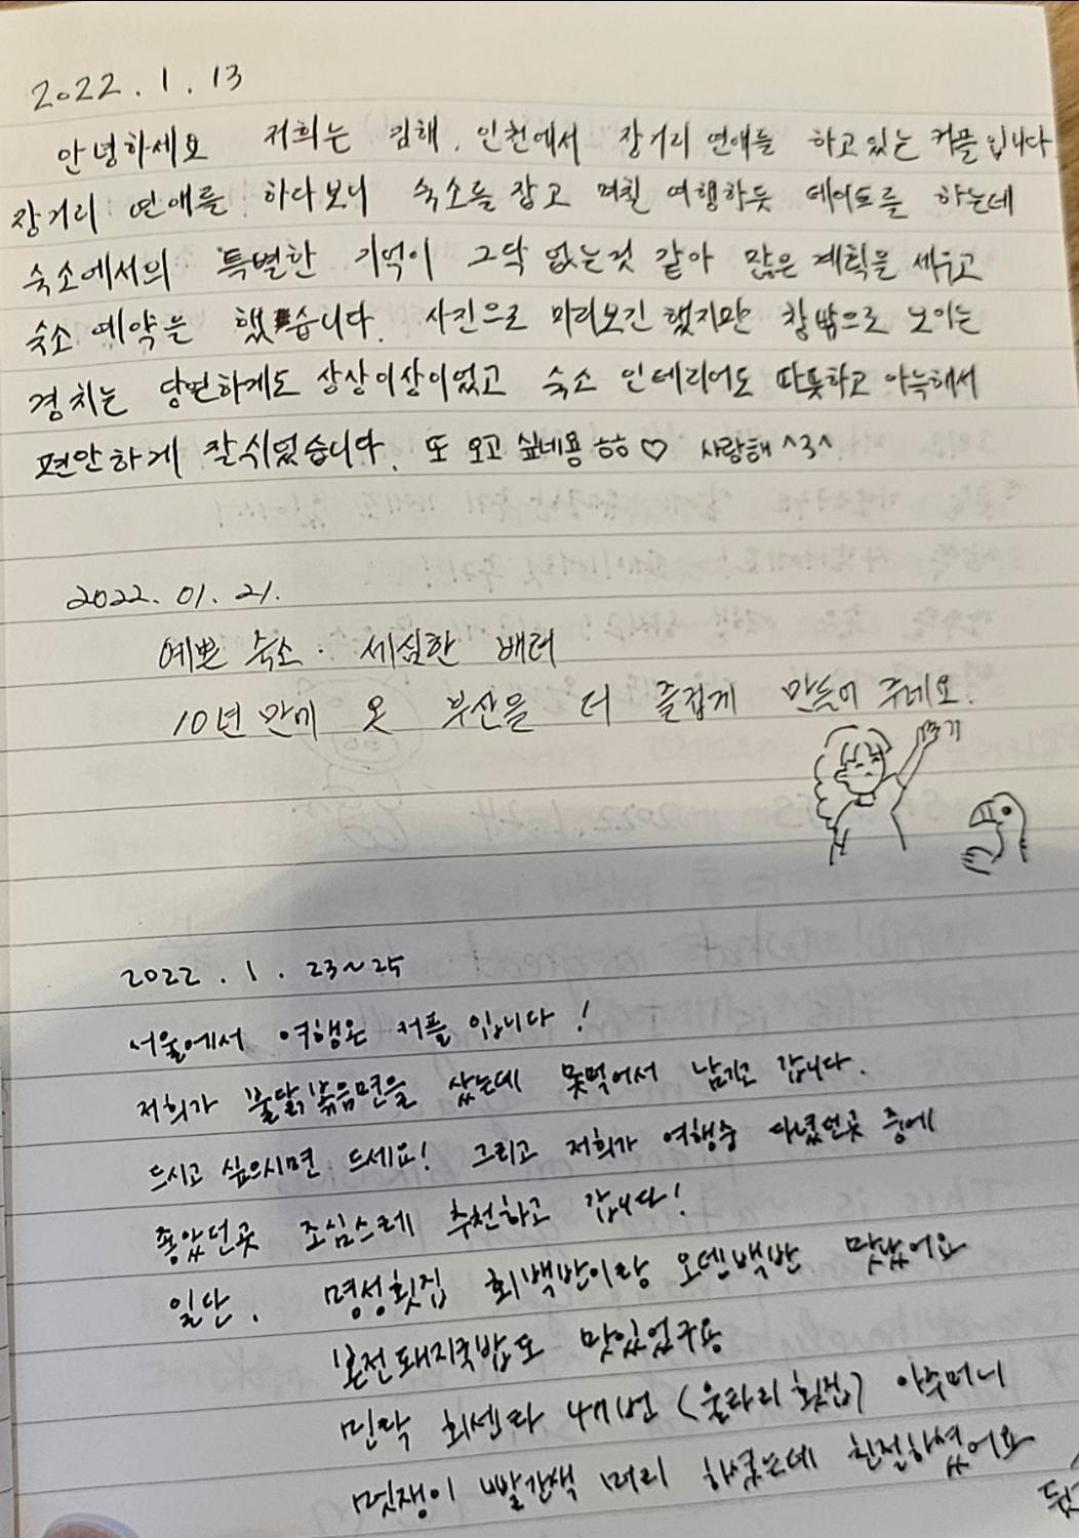 2022. 1. 13
안녕하세요 저희는 김해, 인천에서 장거리 연애를 하고있는 커플입니다
장거리 연애를 하다보니 숙소를 잡고 며칠 여행하듯 데이트를 하는데
숙소에서의 특별한 기억이 그닥 없는것 같아 많은 계획을 세우고
숙소 예약을 했습니다. 사진으로 미리보긴 했지만 창밖으로 보이는
경치는 당연하게도 상상이상이었고 숙소 인테리어도 따뜻하고 아늑해서
편안하게 잘쉬었습니다. 또 오고 싶네용 ㅎㅎ ♡ 사랑해 ^3^
2022. 01. 21.
예쁜 숙소. 세심한 배려
10년 만에 온 부산을 더 즐겁게 만들어 주네요.
2022. 1. 23~25
서울에서 여행온 커플입니다!
저희가 불닭볶음면을 샀는데 못먹어서 남기고 갑니다.
드시고 싶으시면 드세요! 그리고 저희가 여행중 다녔던곳 중에
좋았던곳 조심스레 추천하고 갑니다!
일단, 명성횟집 회백반이랑 오뎅백반 맛났어요
본전돼지국밥도 맛있었구용
민락 회센타 47번 (울타리횟집) 아주머니
멋쟁이 빨간색 머리 하셨는데 친절하셨어요